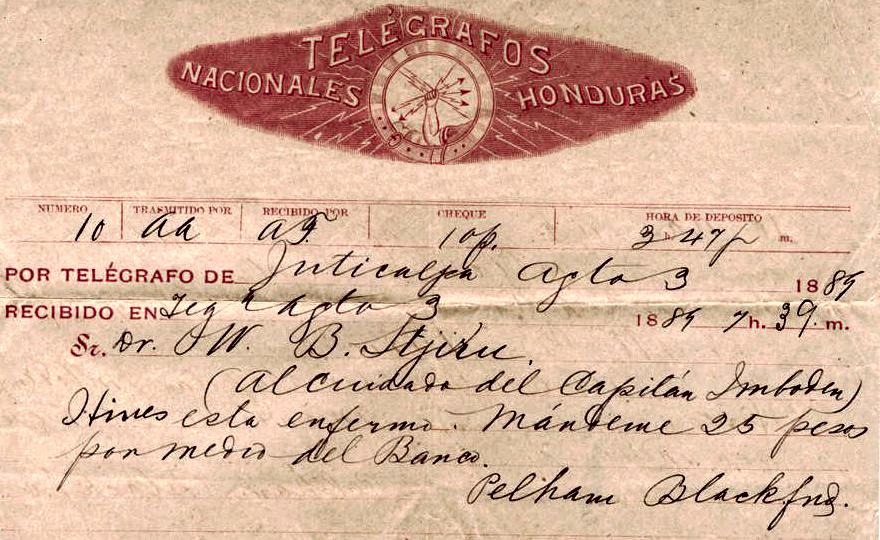 TELÉGRAFOS
NACIONALES HONDURAS
NUMERO TRASMITIDO POR RECIBIDO POR CHEQUE HORA DE DEPOSITO
10 aa 10p. 3 h 47 p m.
POR TELÉGRAFO DE Juticalpa Agto 3 1889
RECIBIDO EN Teg Agto 3 1889 7 h. 39. m.
Sr. Dr. W. B.
(Al cuidado del Capitán Imboden)
Hines esta enfermo. Mándeme 25 pesos
por medio del Banco.
Pelham